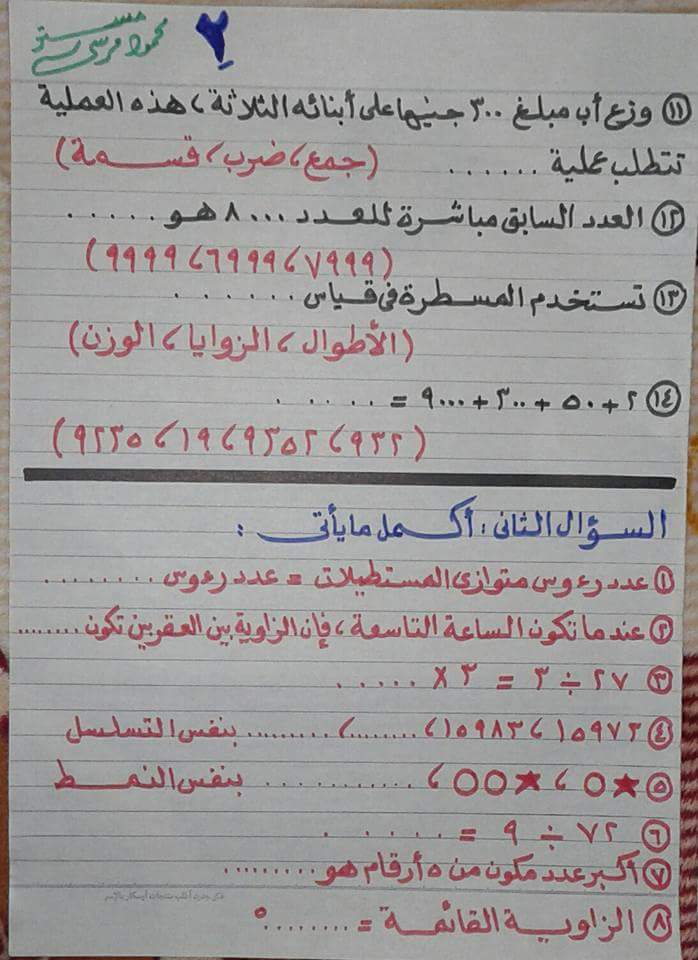 مستر
محمود مرسى
٢
⑪ وزع أب مبلغ ٣٠٠ جنيها على أبنائه الثلاثة ، هذه العملية
تتطلب عملية ...... (جمع ، ضرب ، قسمة)
⑫ العدد السابق مباشرة للعدد ٨٠٠٠ هو ......
(٧٩٩٩ ، ٦٩٩٩ ، ٩٩٩٩)
⑬ تستخدم المسطرة فى قياس ......
(الأطوال ، الزوايا ، الوزن)
⑭ ٢ + ٥٠ + ٣٠٠ + ٩٠٠٠ = .....
(٩٣٢ ، ٩٣٥٢ ، ١٩ ، ٩٢٣٥)
السؤال الثانى : أكمل ما يأتى :
① عدد رءوس متوازى المستطيلات = عدد رءوس .........
② عندما تكون الساعة التاسعة ، فإن الزاوية بين العقربين تكون ........
③ ٢٧ ÷ ٣ = ٣ × .....
④ ١٥٩٧٣ ، ١٥٩٨٣ ، ........ ، ......... بنفس التسلسل
⑤ ★○ ، ★○○ ، ............ بنفس النمط
⑥ ٧٢ ÷ ٩ = .....
⑦ أكبر عدد مكون من ٥ أرقام هو .........
⑧ الزاوية القائمة = ........°